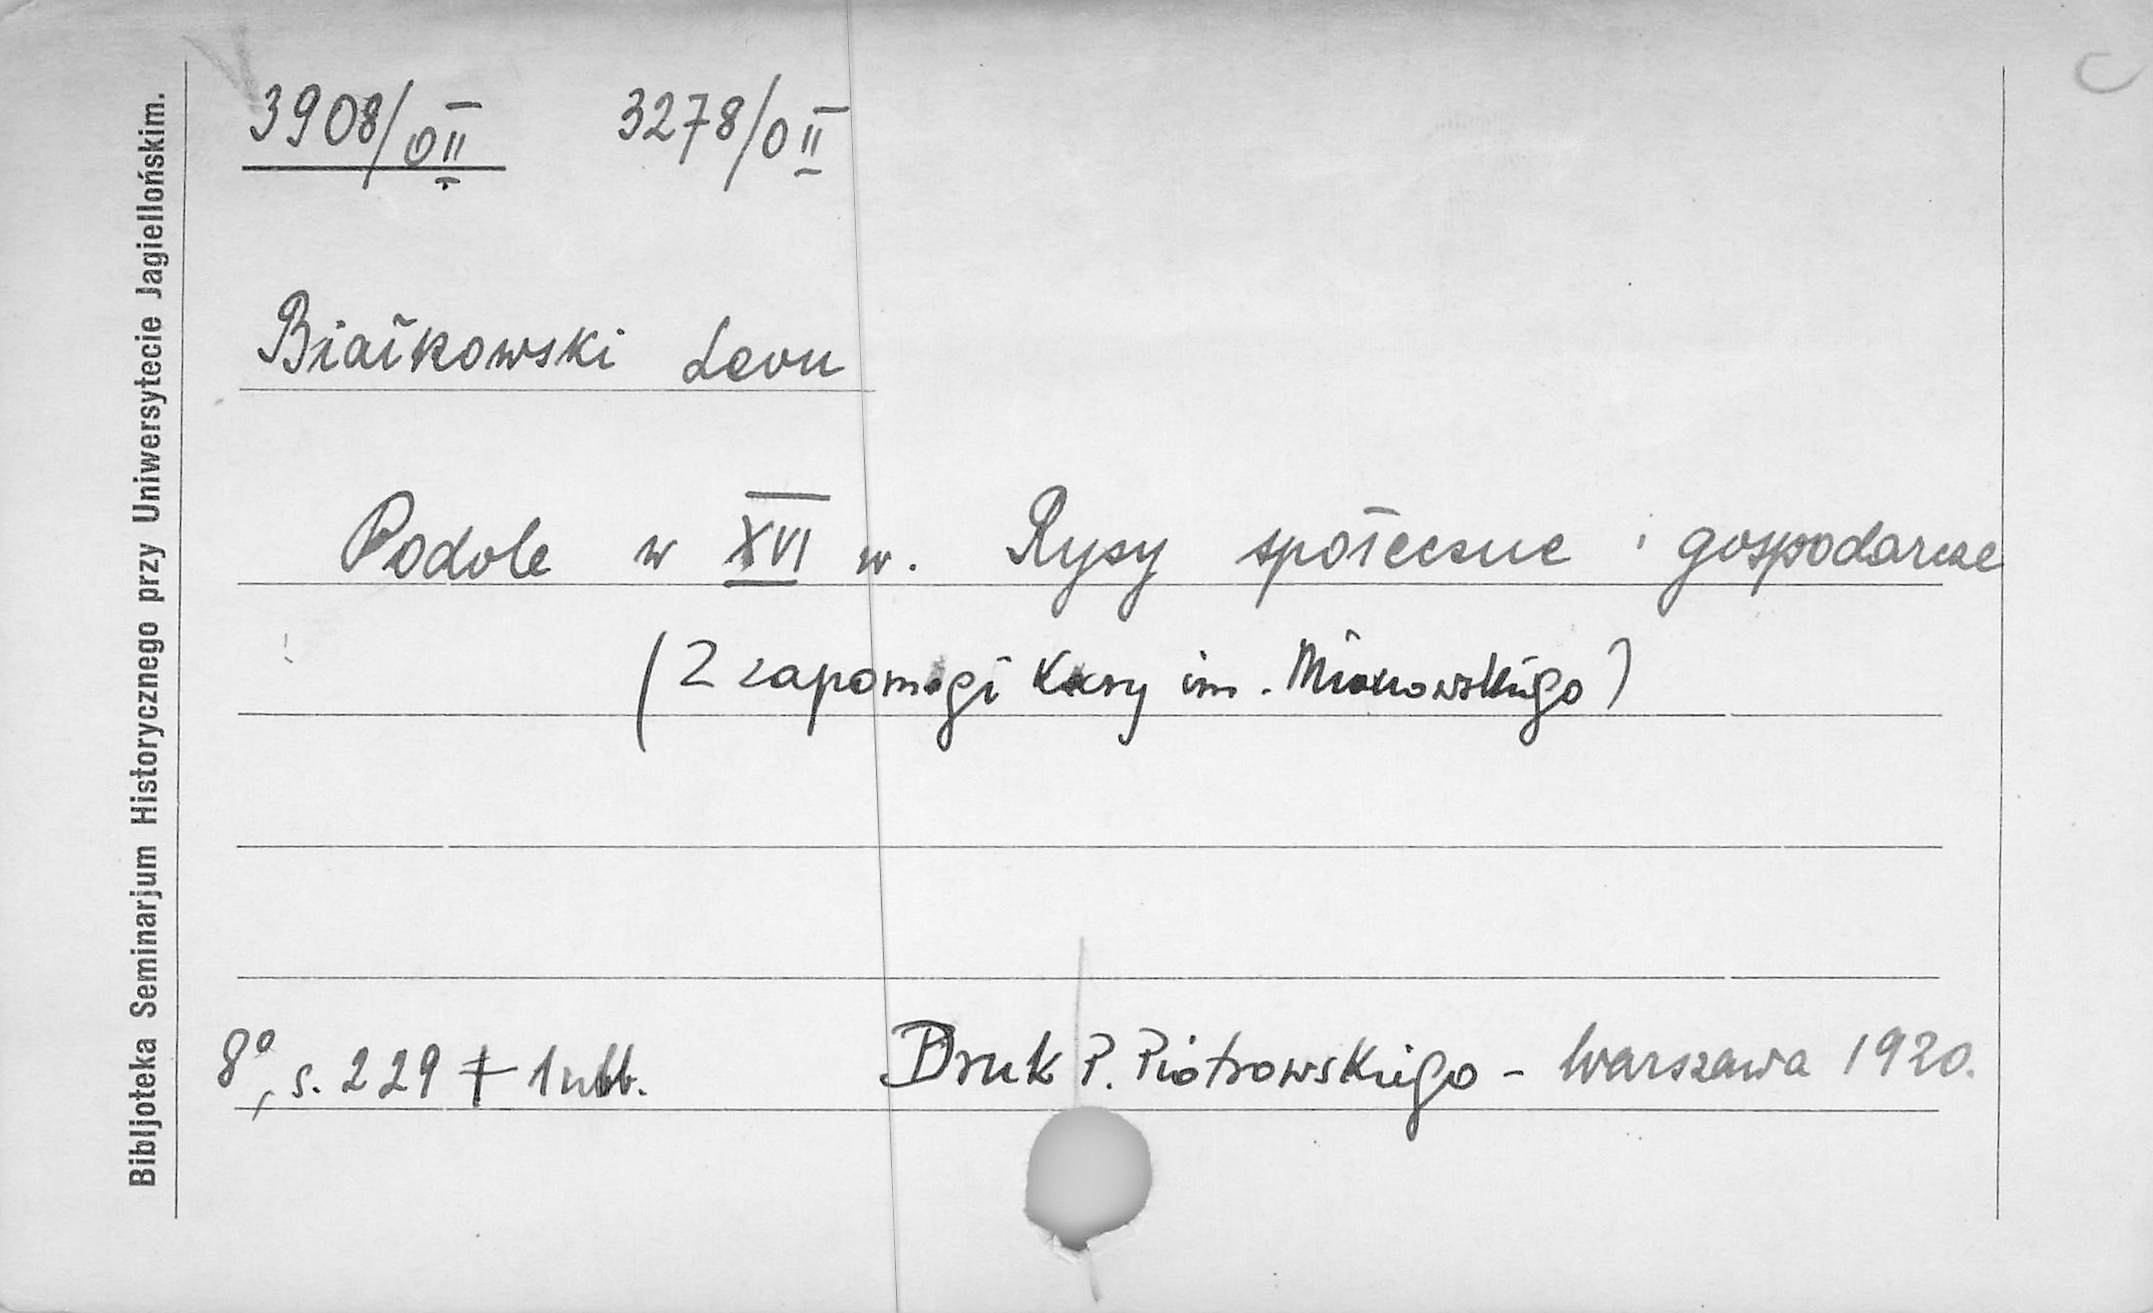 Bibljoteka Seminarjum Historycznego przy Uniwersytecie Jagiellońskim.
3908/0II 3278/0II
Białkowski Leon
Podole w XVI w. Rysy społeczne i gospodarcze
(Z zapomogi Kasy im. Mianowskiego)
8°, s. 229 + 1 nlb. Druk P. Piotrowskiego - Warszawa 1920.